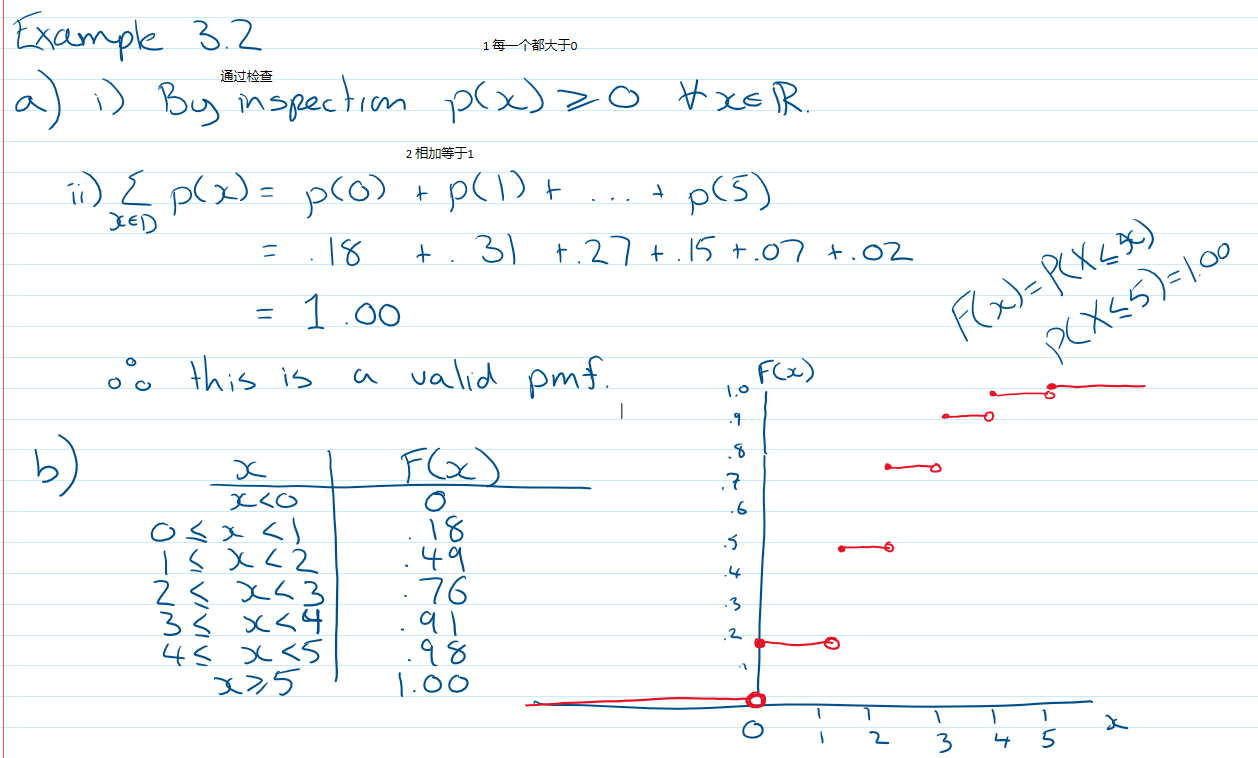 Example 3.2
1 每一个都大于0
通过检查
a) i) By inspection p(x) ≥ 0 ∀ x ∈ ℝ.
2 相加等于1
ii) Σ p(x) = p(0) + p(1) + ... + p(5)
x∈D
= .18 + .31 + .27 + .15 + .07 + .02
= 1.00
F(x) = P(X ≤ x)
P(X ≤ 5) = 1.00
∴ this is a valid pmf.
b)
x F(x)
x < 0 0
0 ≤ x < 1 .18
1 ≤ x < 2 .49
2 ≤ x < 3 .76
3 ≤ x < 4 .91
4 ≤ x < 5 .98
x ≥ 5 1.00
F(x)
1.0
.9
.8
.7
.6
.5
.4
.3
.2
.1
0 1 2 3 4 5 x